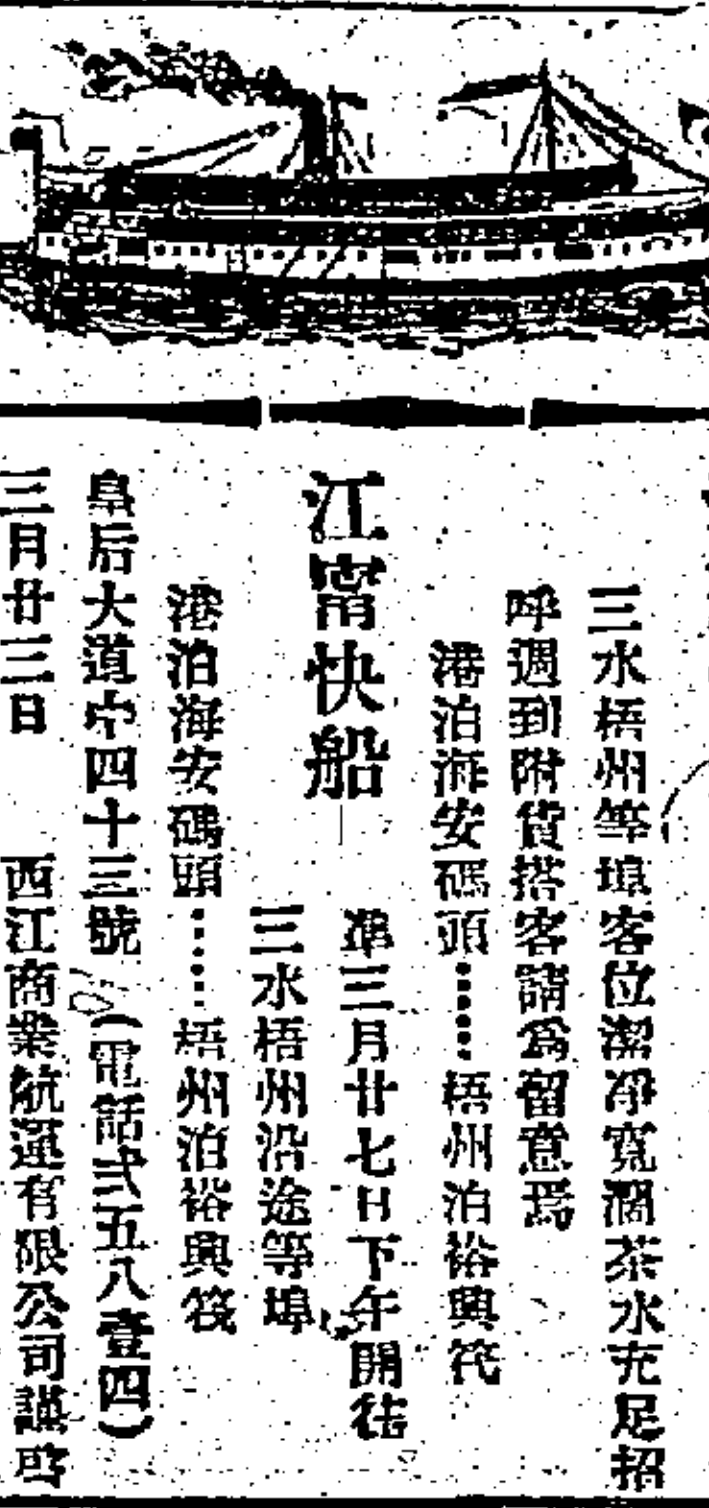 三水梧州等埠客位潔淨寬濶茶水充足招
呼週到附貨搭客請爲留意焉
港泊海安碼頭……梧州泊裕興筏
江甯快船
準三月廿七日下午開往
三水梧州沿途等埠
港泊海安碼頭……梧州泊裕興筏
皇后大道中四十三號 (電話弍五八壹四)
三月廿三日 西江商業航運有限公司謹啓